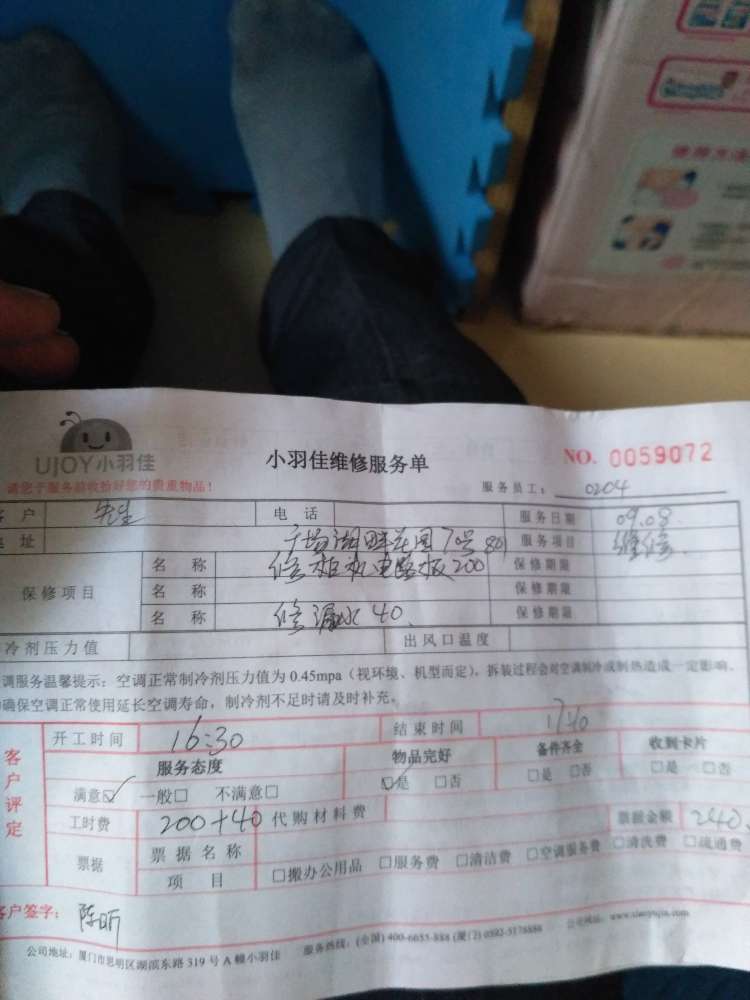 使用方法
UJOY小羽佳
小羽佳维修服务单
NO. 0059072
请您于服务前收拾好您的贵重物品!
服务员工: 0204
户 先生 电 话 服务日期 09.08
址 广场湖畔花园7号801 服务项目 维修
保修项目
名 称 修柜机电路板200 保修期限
名 称 保修期限
名 称 修漏水 40 保修期限
冷剂压力值 出风口温度
调服务温馨提示: 空调正常制冷剂压力值为 0.45mpa (视环境、机型而定), 拆装过程会对空调制冷或制热造成一定影响
确保空调正常使用延长空调寿命, 制冷剂不足时请及时补充。
客户评定
开工时间 16:30 结束时间 17:40
服务态度 物品完好 备件齐全 收到卡片
满意☑ 一般□ 不满意□ ☑是 □否 □是 □否 □是 □否
工时费 200+40 代购材料费 票据金额 240
票据
票据名称
项 目 □搬办公用品 □服务费 □清洁费 □空调服务费 □清洗费 □疏通费
客户签字: 陈昕
公司地址: 厦门市思明区湖滨东路 319 号 A 幢小羽佳 服务热线: (全国) 400-6655-888 (厦门) 0592-5178888 公司网站: www.xiaoyujia.com